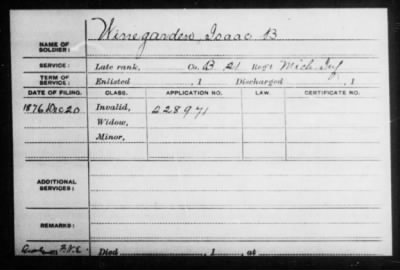 NAME OF SOLDIER: Winegarden, Isaac B
SERVICE: Late rank, Co. B 21 Reg't Mich. Inf
TERM OF SERVICE: Enlisted , 1 Discharged , 1
DATE OF FILING. CLASS. APPLICATION NO. LAW. CERTIFICATE NO.
1876 Dec 20 Invalid, 228971
Widow,
Minor,
ADDITIONAL SERVICES:
REMARKS:
Died , 1 , at